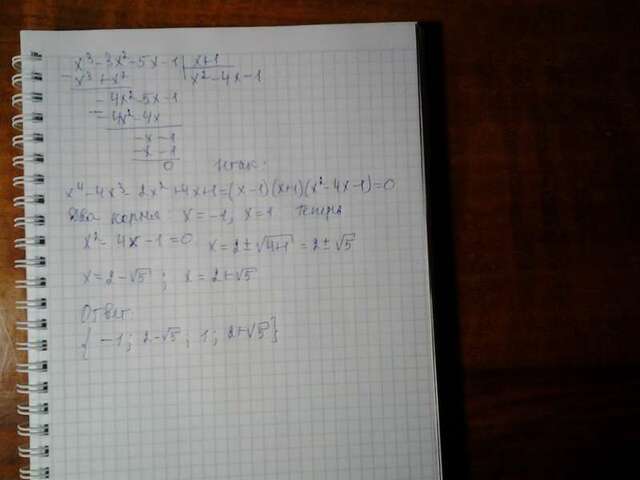 x³-3x²-5x-1 | x+1
- x³+x² x²-4x-1
-4x²-5x-1
- -4x²-4x
-x-1
-x-1
0 Итак:
x⁴-4x³-2x²+4x+1=(x-1)(x+1)(x²-4x-1)=0
Два корня: x=-1, x=1 теперь
x²-4x-1=0 x=2±√4+1=2±√5
x=2-√5; x=2+√5
Ответ
{-1; 2-√5; 1; 2+√5}